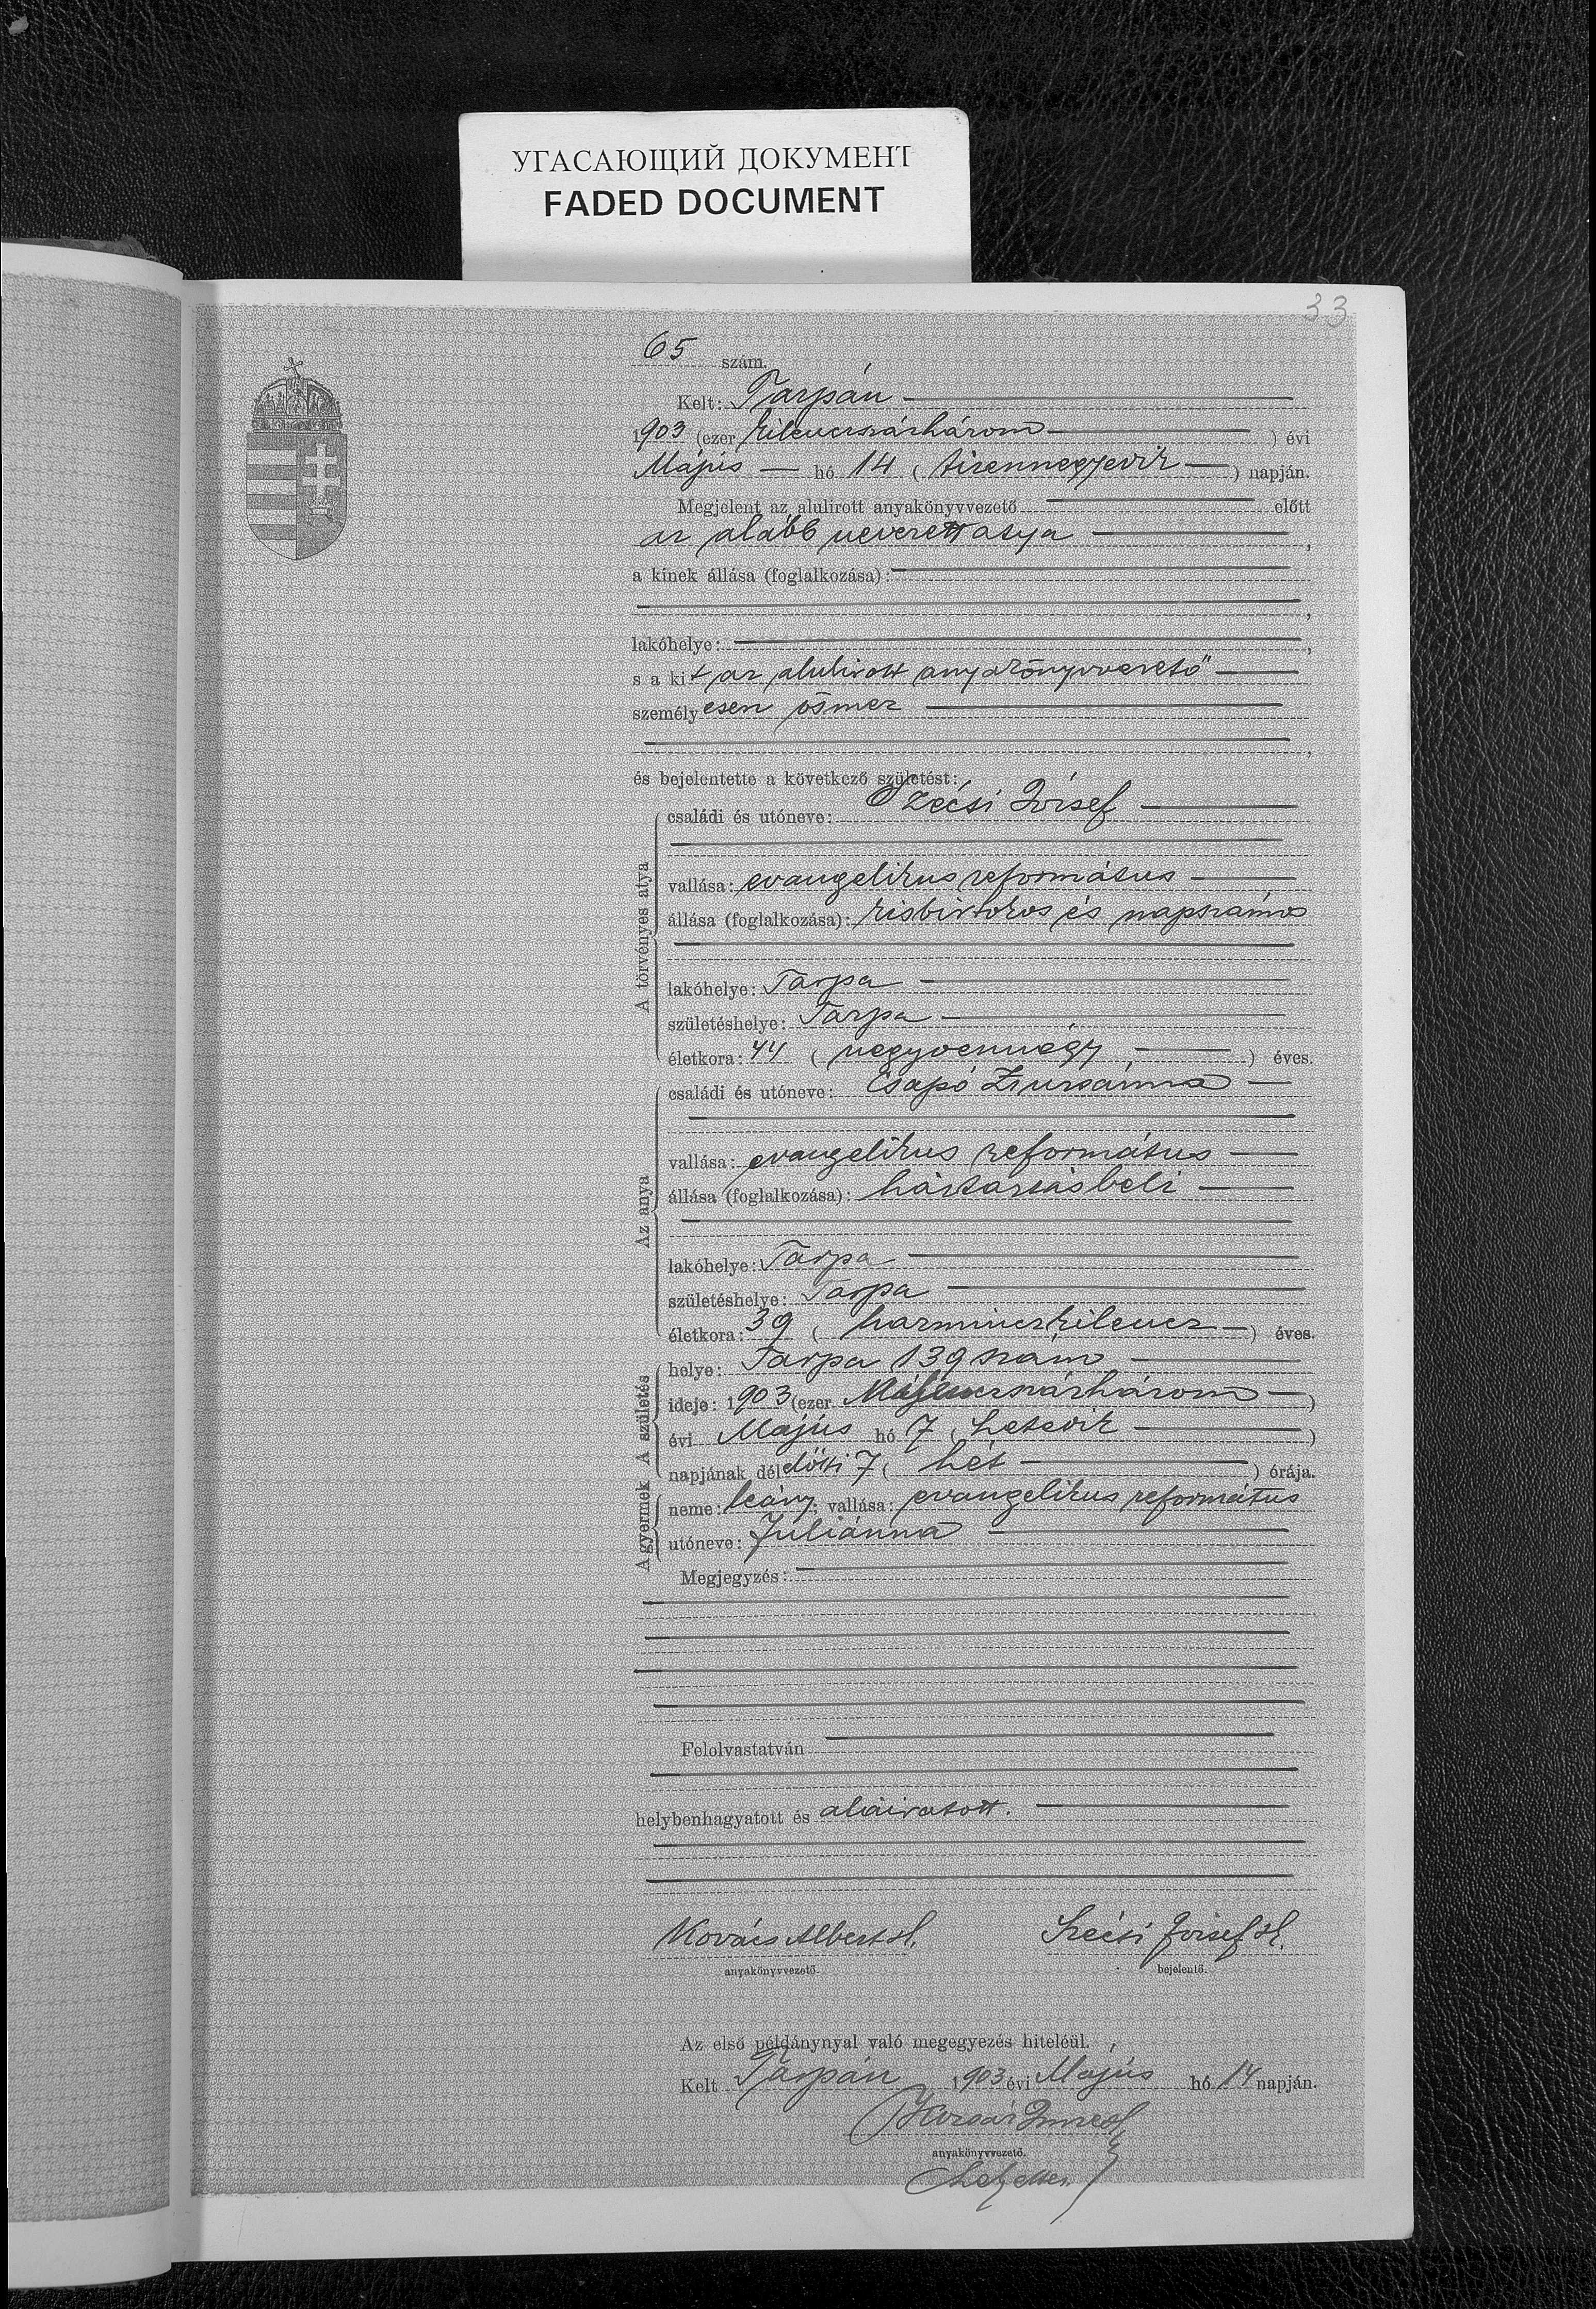 УГАСАЮЩИЙ ДОКУМЕНТ
FADED DOCUMENT
33
65 szám.
Kelt: Tarpán
1903 (ezer kilenczszázhárom) évi
Május hó 14 (tizennegyedik) napján.
Megjelent az alulirott anyakönyvvezető előtt
az alább nevezett atya,
a kinek állása (foglalkozása):
,
lakóhelye: ,
s a kit az alulirott anyakönyvvezető
személyesen ösmer
,
és bejelentette a következő születést:
A törvényes atya
családi és utóneve: Szécsi József
vallása: evangelikus református
állása (foglalkozása): kisbirtokos és napszámos
lakóhelye: Tarpa
születéshelye: Tarpa
életkora: 44 (negyvennégy) éves.
Az anya
családi és utóneve: Csapó Zsuzsánna
vallása: evangelikus református
állása (foglalkozása): háztartásbeli
lakóhelye: Tarpa
születéshelye: Tarpa
életkora: 39 (harminczkilencz) éves.
A születés
helye: Tarpa 139 szám
ideje: 1903 (ezer kilenczszázhárom)
évi Május hó 7 (hetedik)
napjának délelőtti 7 (hét) órája.
A gyermek
neme: leány; vallása: evangelikus református
utóneve: Juliánna
Megjegyzés:
Felolvastatván
helybenhagyatott és aláiratott.
Kovács Albert sk. Szécsi József sk.
anyakönyvvezető. bejelentő.
Az első példánynyal való megegyezés hiteléül.
Kelt Tarpán 1903 évi Május hó 14 napján.
Imre
anyakönyvvezető.